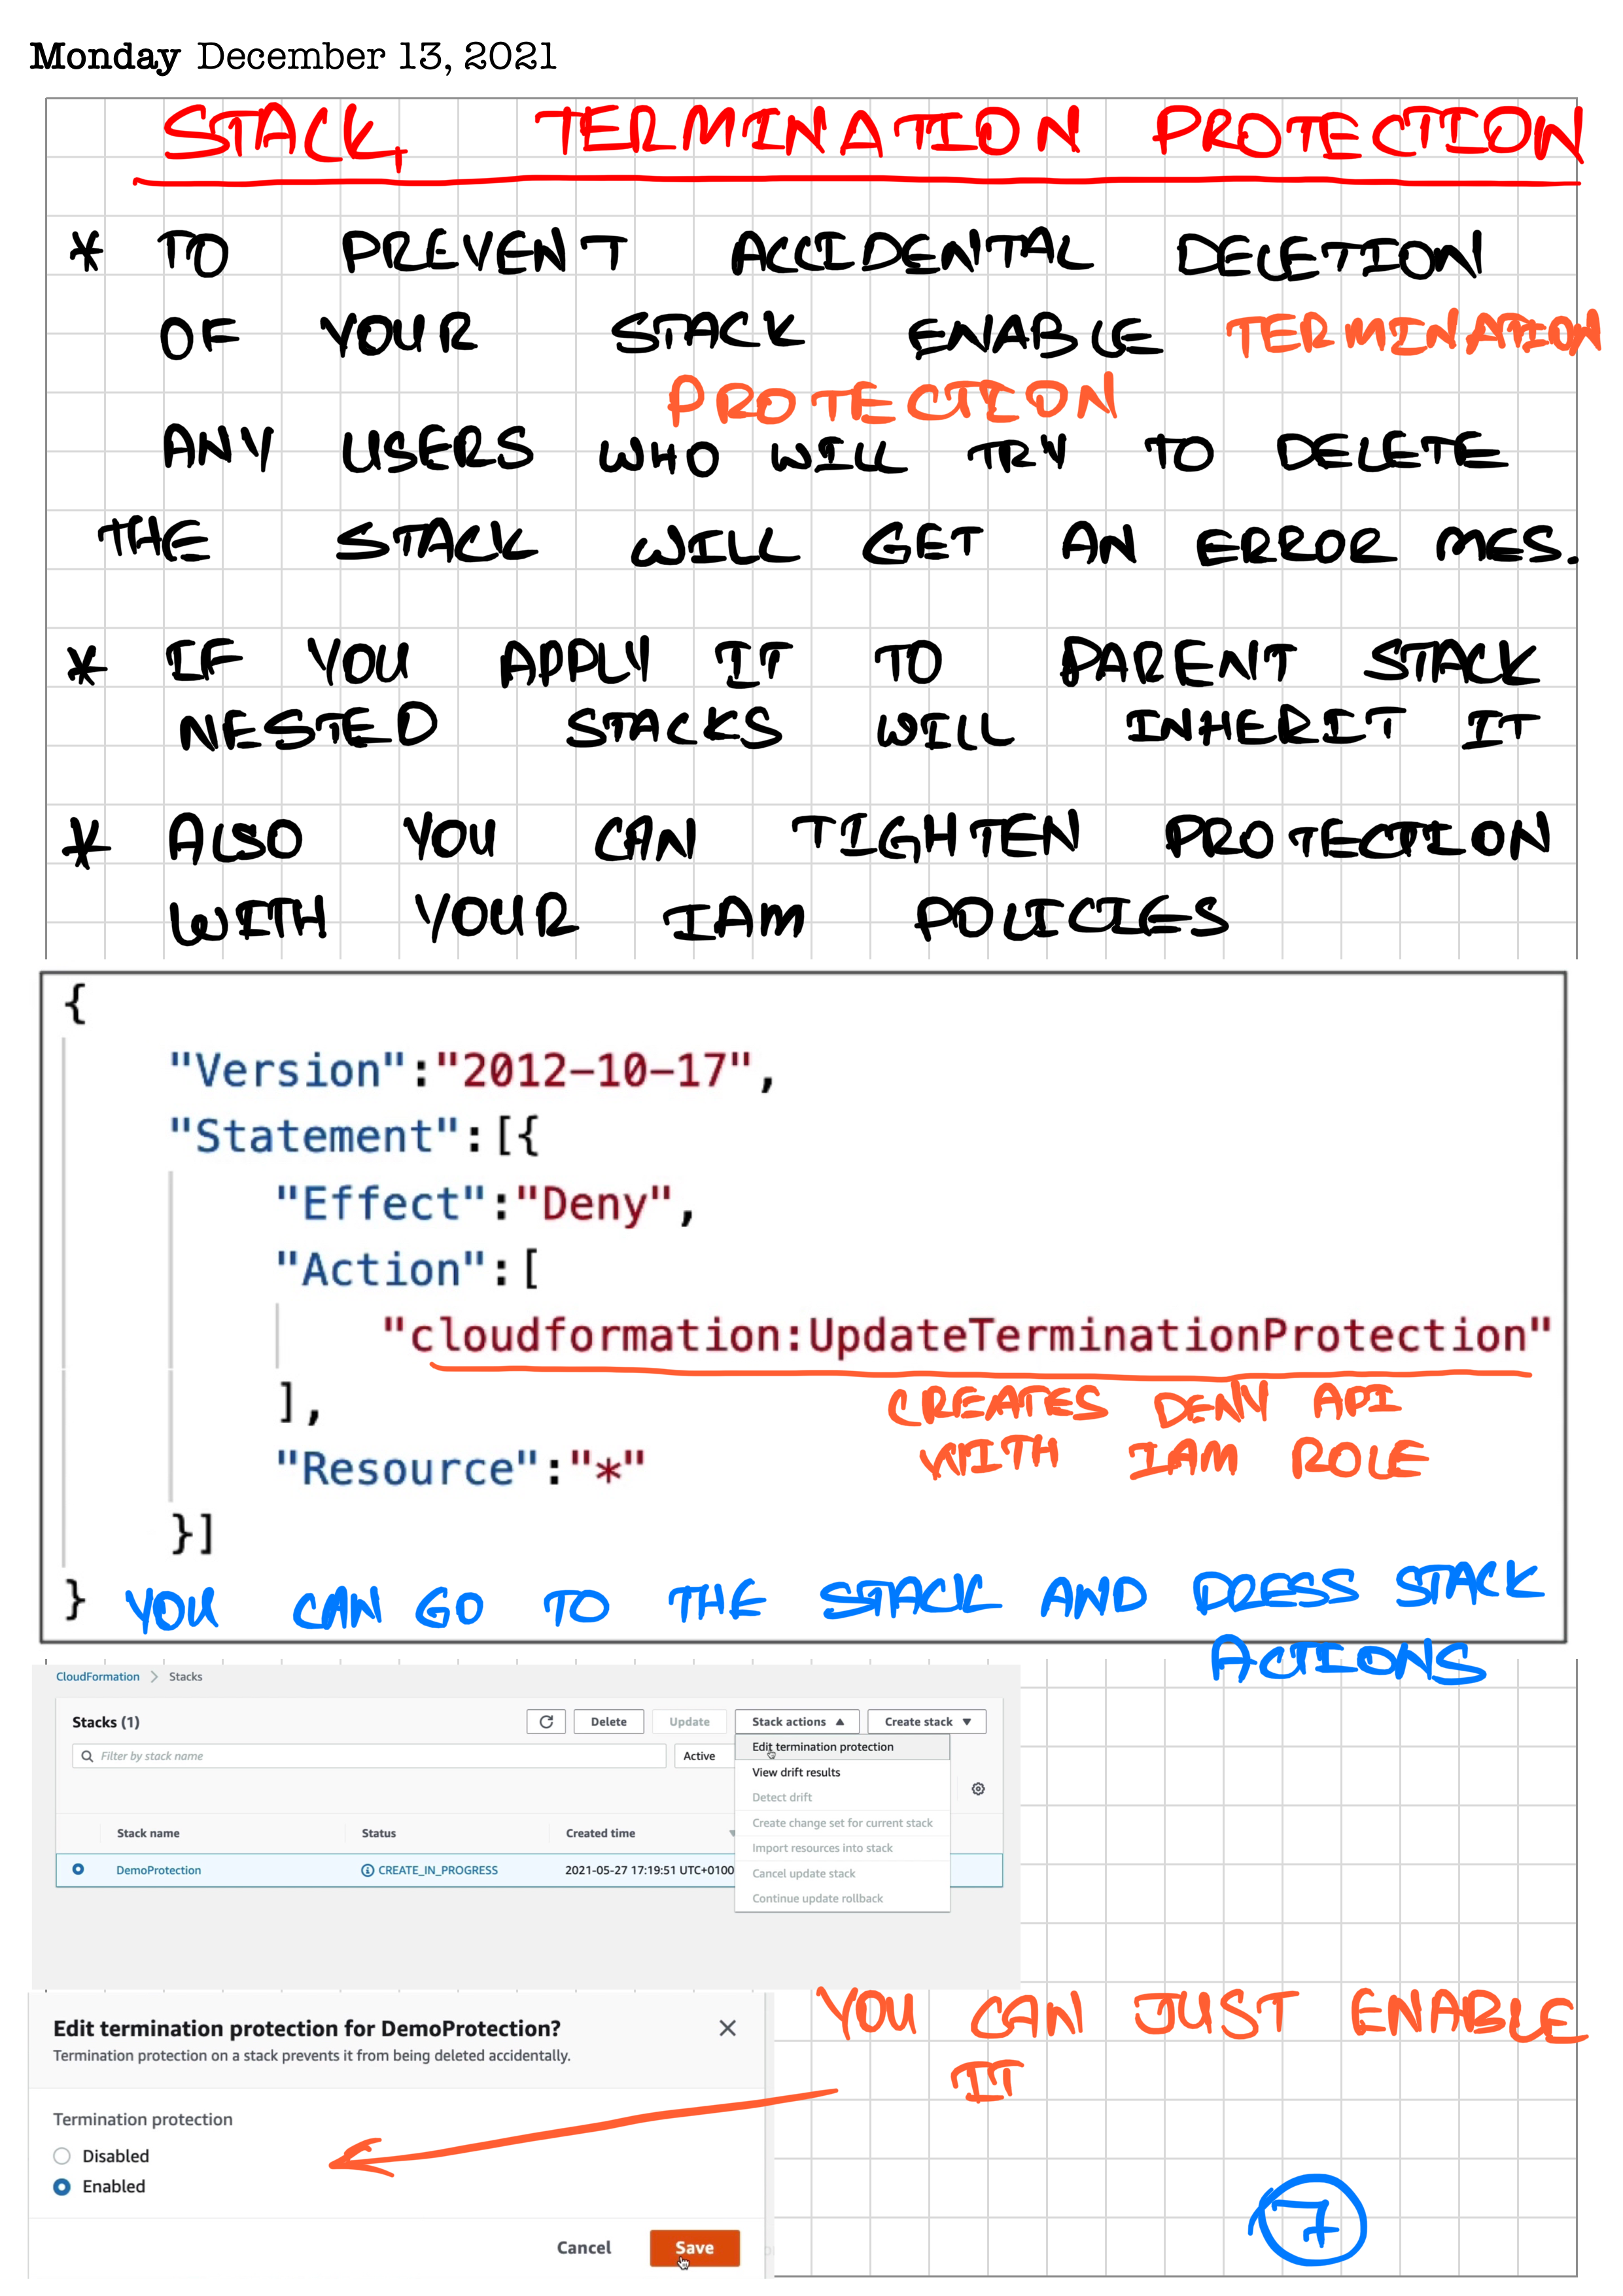 Monday December 13, 2021
STACK TERMINATION PROTECTION
* TO PREVENT ACCIDENTAL DELETION
OF YOUR STACK ENABLE TERMINATION
PROTECTION
ANY USERS WHO WILL TRY TO DELETE
THE STACK WILL GET AN ERROR MES.
* IF YOU APPLY IT TO PARENT STACK
NESTED STACKS WILL INHERIT IT
* ALSO YOU CAN TIGHTEN PROTECTION
WITH YOUR IAM POLICIES
{
"Version":"2012-10-17",
"Statement":[{
"Effect":"Deny",
"Action":[
"cloudformation:UpdateTerminationProtection"
],
CREATES DENY API
"Resource":"*"
WITH IAM ROLE
}]
}
YOU CAN GO TO THE STACK AND PRESS STACK
ACTIONS
CloudFormation > Stacks
Stacks (1) Delete Update Stack actions Create stack
Filter by stack name Active
Edit termination protection
View drift results
Detect drift
Create change set for current stack
Import resources into stack
Cancel update stack
Continue update rollback
Stack name Status Created time
DemoProtection CREATE_IN_PROGRESS 2021-05-27 17:19:51 UTC+0100
YOU CAN JUST ENABLE
IT
Edit termination protection for DemoProtection?
Termination protection on a stack prevents it from being deleted accidentally.
Termination protection
Disabled
Enabled
Cancel Save
7